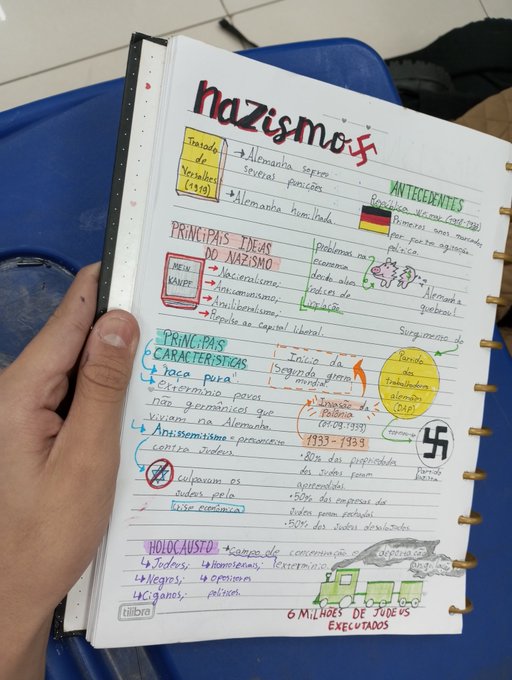 nazismo
Tratado
de
Versalhes
(1919)
→ Alemanha sofreu
severas punições
→ Alemanha humilhada.
ANTECEDENTES
República Weimar
Primeiros anos marcados
por forte agitação
política.
problemas na
economia
devido altos
índices de
inflação
Alemanha
quebrou!
PRINCIPAIS IDEIAS
DO NAZISMO
MEIN
KAMPF
→ Nacionalismo;
→ Anticomunismo;
→ Antiliberalismo;
→ Repulso ao Capital liberal.
Surgimento do
Partido
dos
trabalhadores
alemães
(DAP)
tornou
Partido
Nazista
PRINCIPAIS
CARACTERÍSTICAS
"raça pura"
extermínio povos
não germânicos que
viviam na Alemanha.
Antissemitismo = preconceito
contra judeus.
culpavam os
judeus pela
crise econômica
Início da
Segunda guerra
mundial
Invasão da
Polônia
(01-09-1939)
1933-1939
• 80% das propriedades
dos judeus foram
apreendidas.
• 50% das empresas dos
judeus foram fechadas
• 50% dos judeus desalojados.
HOLOCAUSTO
→ Campo de concentração e
extermínio
deportação
↳ Judeus;
↳ Negros;
↳ Ciganos;
↳ Homosexuais;
↳ opositores
políticos.
6 MILHÕES DE JUDEUS
EXECUTADOS
tilibra